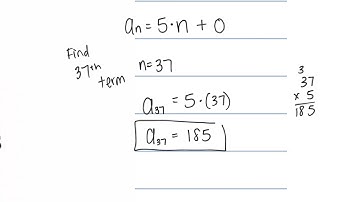 aₙ = 5·n + 0
Find
37th
term
n=37
a₃₇ = 5·(37)
a₃₇ = 185
3
37
x 5
185